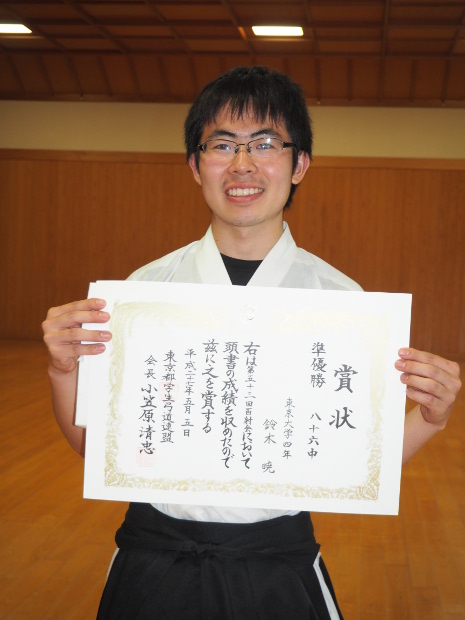 賞状
準優勝 八十六中
東京大学四年
鈴木 暁
右は第五十二回百射会において
頭書の成績を収めたので
茲に之を賞する
平成二十七年五月五日
東京都学生弓道連盟
会長 小笠原清忠